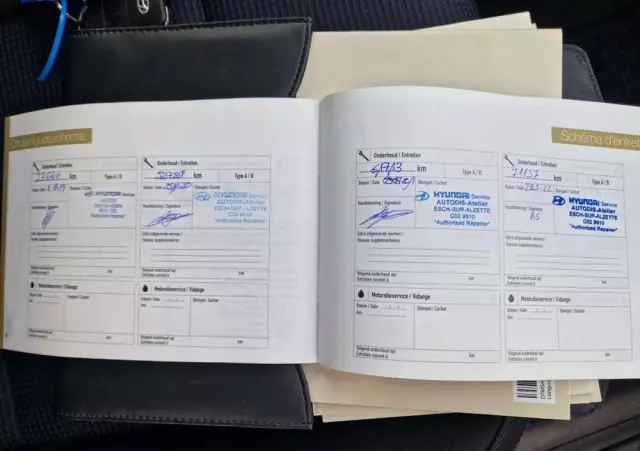 Onderhoudsschema
Onderhoud / Entretien
km
Type A / B
Datum / Date
Stempel / Cachet
Handtekening / Signature
HYUNDAI
Extra uitgevoerde werken /
Travaux supplémentaires
Volgend onderhoud op/
Entretien suivant à
km
Motorolieservice / Vidange
Datum / Date
Stempel / Cachet
km
Volgend onderhoud op/
Entretien suivant à
km
Onderhoud / Entretien
km
Type A / B
Datum / Date
Stempel / Cachet
Handtekening / Signature
HYUNDAI Service
AUTODIS-Atelier
ESCH-SUR-ALZETTE
C02 9910
"Authorized Repairer"
Extra uitgevoerde werken /
Travaux supplémentaires
Volgend onderhoud op/
Entretien suivant à
km
Motorolieservice / Vidange
Datum / Date
Stempel / Cachet
km
Volgend onderhoud op/
Entretien suivant à
km
Schéma d'entret
Onderhoud / Entretien
km
Type A / B
Datum / Date
Stempel / Cachet
Handtekening / Signature
HYUNDAI Service
AUTODIS-Atelier
ESCH-SUR-ALZETTE
C02 9910
"Authorized Repairer"
Extra uitgevoerde werken /
Travaux supplémentaires
Volgend onderhoud op/
Entretien suivant à
km
Motorolieservice / Vidange
Datum / Date
Stempel / Cachet
km
Volgend onderhoud op/
Entretien suivant à
km
Onderhoud / Entretien
71157 km
Type A / B
Datum / Date
Stempel / Cachet
Handtekening / Signature
HYUNDAI Service
AUTODIS-Atelier
ESCH-SUR-ALZETTE
C02 9910
"Authorized Repairer"
Extra uitgevoerde werken /
Travaux supplémentaires
Volgend onderhoud op/
Entretien suivant à
km
Motorolieservice / Vidange
Datum / Date
Stempel / Cachet
km
Volgend onderhoud op/
Entretien suivant à
km